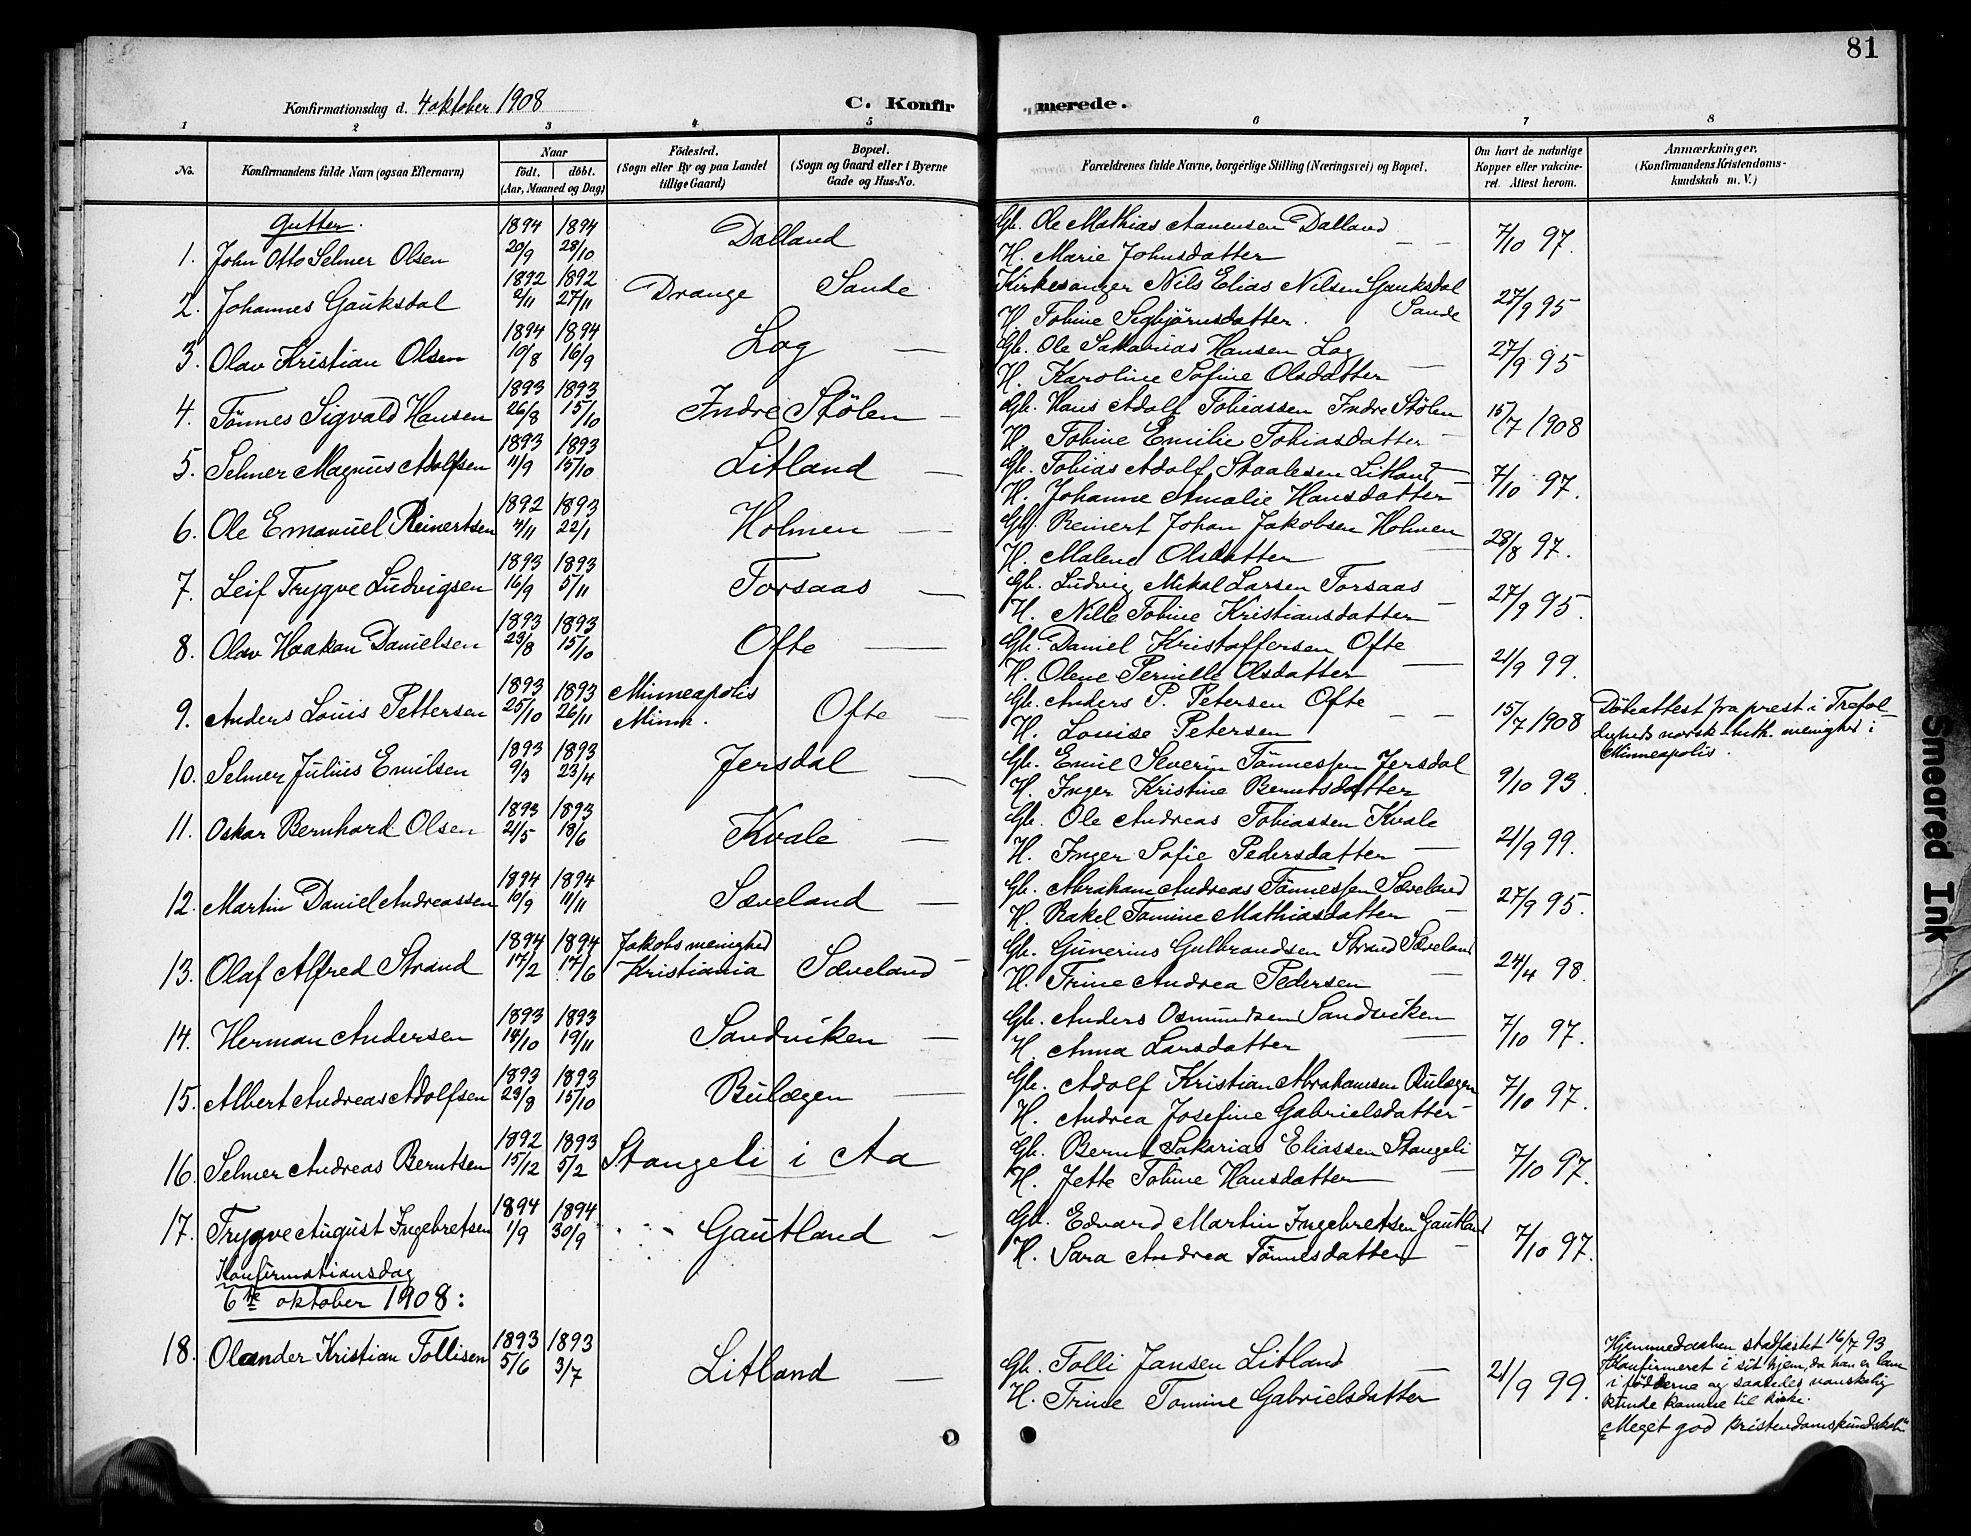 81
Konfirmationsdag d. 4 oktober 1908
C. Konfirmerede.
1 2 3 4 5 6 7 8
No. Konfirmandens fulde Navn (ogsaa Efternavn) Naar født. døbt. (Aar, Maaned og Dag) Fødested. (Sogn eller By og paa Landet tillige Gaard) Bopæl. (Sogn og Gaard eller i Byerne Gade og Hus-No. Forældrenes fulde Navne, borgerlige Stilling (Næringsvei) og Bopæl. Om havt de naturlige Kopper eller vakcineret. Attest herom. Anmærkninger. (Konfirmandens Kristendomskundskab m. V.)
Gutter.
1. John Otto Selmer Olsen 1894 20/9 1894 28/10 Dalland Gb. Ole Mathias Aanensen Dalland
H. Marie Johnsdatter 7/10 97.
2. Johannes Gauksdal 1892 2/11 1892 27/11 Drange Sande Kirkesanger Nils Elias Nilsen Gauksdal
H. Tobine Sigbjørnsdatter. Sande 27/9 95
3. Olav Kristian Olsen 1894 10/8 1894 16/9 Log — Gb. Ole Sakarias Hansen Log
H. Karoline Sofine Olsdatter — 27/9 95
4. Tønnes Sigvald Hansen 1893 26/8 1893 15/10 Indre Stølen — Gb. Hans Adolf Tobiassen Indre Stølen
H. Tobine Emilie Tobiasdatter — 15/7 1908
5. Selmer Magnus Adolfsen 1893 11/9 1893 15/10 Litland — Gb. Tobias Adolf Staalesen Litland
H. Johanne Amalie Hansdatter 7/10 97.
6. Ole Emanuel Reinertsen 1892 4/11 1893 22/1 Holmen — Gb. Reinert Johan Jakobsen Holmen
H. Malene Olsdatter — 28/8 97.
7. Leif Trygve Ludvigsen 1893 16/9 1893 5/11 Torsaas — Gb. Ludvig Mikal Larsen Torsaas
H. Nille Tobine Kristiansdatter — 27/9 95.
8. Olav Haakon Danielsen 1893 23/8 1893 15/10 Ofte — Gb. Daniel Kristoffersen Ofte
H. Olene Pernille Olsdatter — 21/9 99.
9. Anders Louis Pettersen 1893 25/10 1893 26/11 Minneapolis Minn. Ofte — Gb. Anders P. Petersen Ofte
H. Louise Petersen — — 15/7 1908 Døbeattest fra prest i Trefol-
digheds norsk-luth. menighed i
Minneapolis.
10. Selmer Julius Emilsen 1893 9/3 1893 23/4 Jersdal — Gb. Emil Severin Tønnessen Jersdal
H. Inger Kristine Berntsdatter 9/10 93.
11. Oskar Bernhard Olsen 1893 21/5 1893 18/6 Kvale — Gb. Ole Andreas Tobiassen Kvale
H. Inger Sofie Pedersdatter — 21/9 99.
12. Martin Daniel Andreassen 1894 10/9 1894 11/11 Sæveland — Gb. Abraham Andreas Tønnessen Sæveland
H. Rakel Tomine Mathiasdatter — 27/9 95.
13. Olaf Alfred Strand 1894 17/2 1894 17/6 Jakobs menighed Kristiania Sæveland — Gb. Gunerius Gulbrandsen Strand Sæveland
H. Trine Andrea Pedersen — 24/4 98.
14. Herman Andersen 1893 14/10 1893 19/11 Sandviken — Gb. Anders Osmundsen Sandviken
H. Anna Larsdatter — 7/10 97.
15. Albert Andreas Adolfsen 1893 23/8 1893 15/10 Bulægen — Gb. Adolf Kristian Abrahamsen Bulægen
H. Andrea Josefine Gabrielsdatter — 7/10 97.
16. Selmer Andreas Berntsen 1892 15/12 1893 5/2 Stangeli i Aa Gb. Bernt Sakarias Eliassen Stangeli
H. Jette Tobine Hansdatter — 7/10 97.
17. Trygve August Ingebretsen 1894 1/9 1894 30/9 Gautland — Gb. Edvard Martin Ingebretsen Gautland
H. Sara Andrea Tønnesdatter — 7/10 97.
Konfirmationsdag
6te oktober 1908:
18. Olander Kristian Tollisen 1893 5/6 1893 3/7 Litland — Gb. Tolli Jansen Litland —
H. Trine Tomine Gabrielsdatter 21/9 99. Hjemmedaaben stadfæstet 16/7 93
Konfirmeret i sit hjem, da han er lam
i fødderne og saaledes vanskelig
kunde komme til kirke.
"Meget god kristendomskundskab"
Smeared Ink